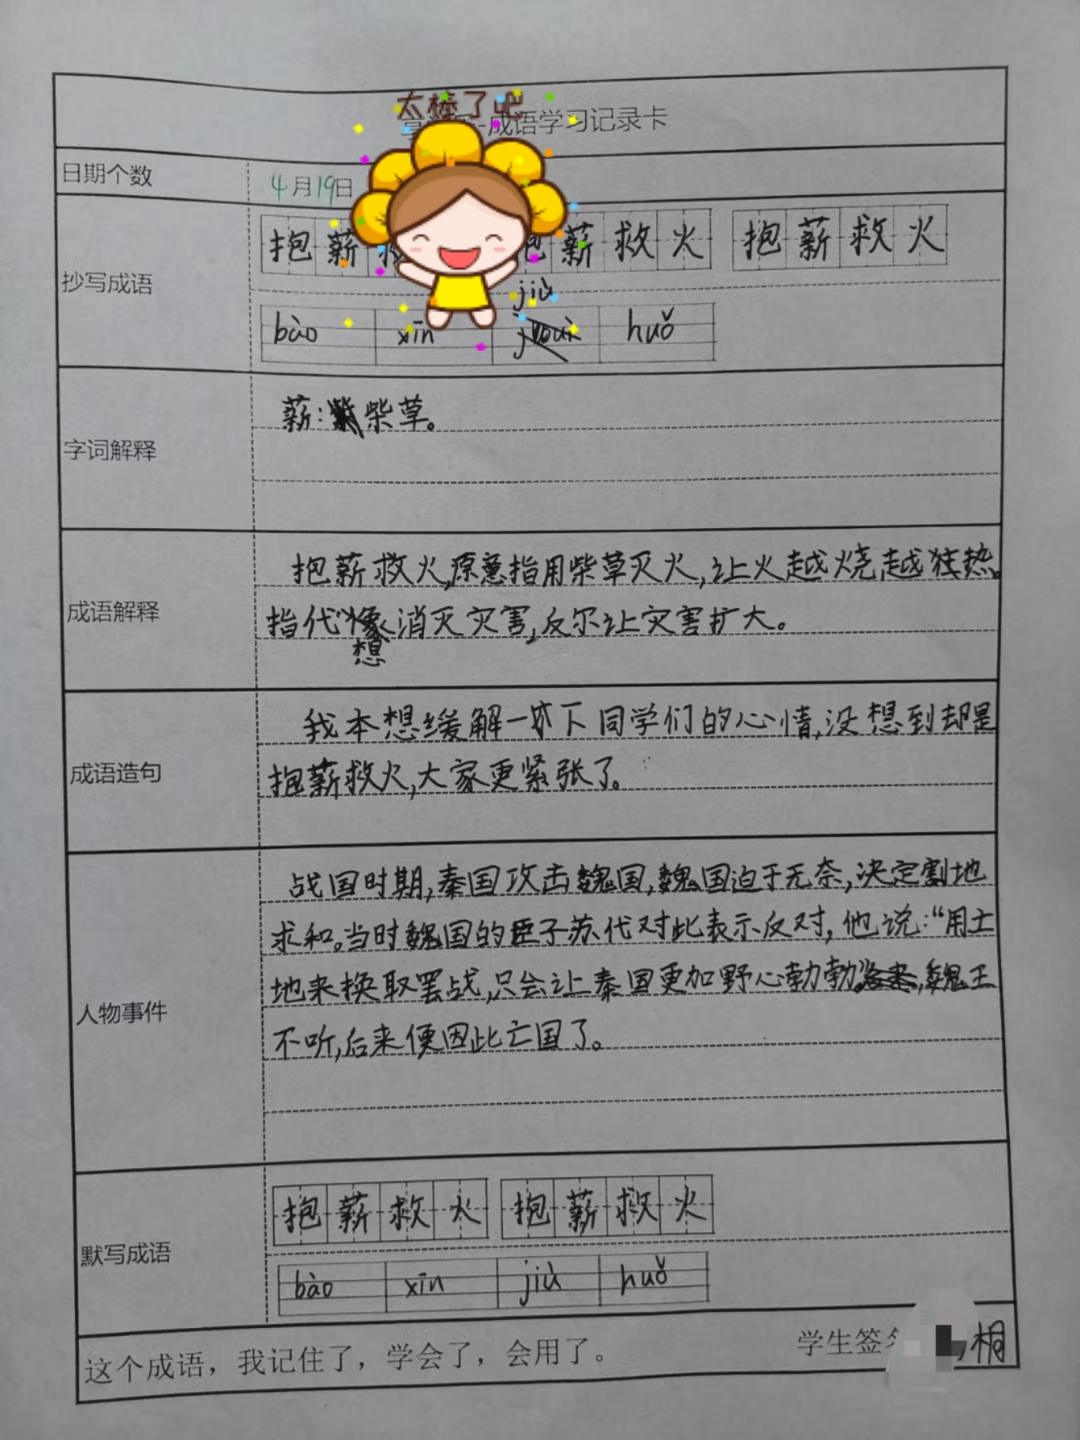 太棒了吧
-成语学习记录卡
日期个数
4月19日
抄写成语
抱薪 薪救火 抱薪救火
jiù
bào xīn huǒ
字词解释
薪：柴草。
成语解释
抱薪救火，原意指用柴草灭火，让火越烧越狂热。
指代想消灭灾害，反尔让灾害扩大。
成语造句
我本想缓解一下同学们的心情，没想到却是
抱薪救火，大家更紧张了。
人物事件
战国时期，秦国攻击魏国，魏国迫于无奈，决定割地
求和。当时魏国的臣子苏代对此表示反对，他说：“用土
地来换取罢战，只会让秦国更加野心勃勃。”魏王
不听，后来便因此亡国了。
默写成语
抱薪救火 抱薪救火
bào xīn jiù huǒ
这个成语，我记住了，学会了，会用了。
学生签 桐